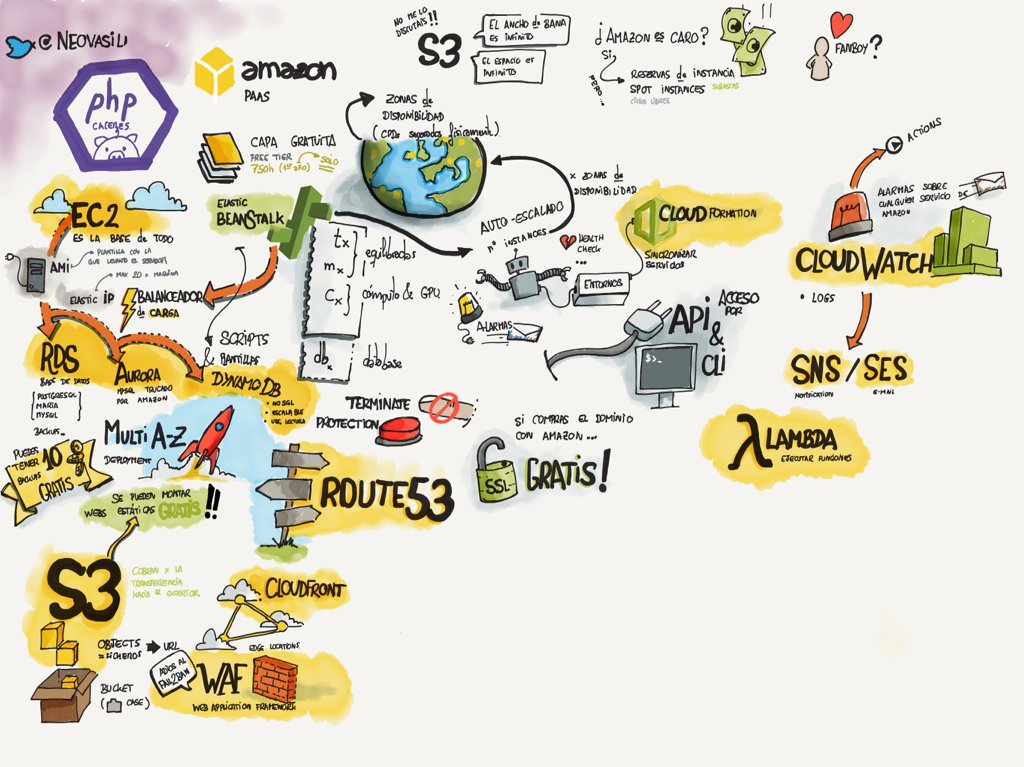 @NEOVASILI
php
CACERES
amazon
PAAS
NO ME LO
DISCUTAIS!!
S3
EL ANCHO DE BANA
ES INFINITO
EL ESPACIO ES
INFINITO
¿AMAZON ES CARO?
SI,
PERO...
RESERVAS de INSTANCIA
SPOT INSTANCES SUBASTAS
CICLOS LIBRES
FANBOY?
CAPA GRATUITA
FREE TIER
750h (1er AÑO) SOLO
ZONAS de
DISPONIBILIDAD
(CPDs separados físicamente)
EC2
ES LA BASE de TODO
AMI
PLANTILLA CON LA
QUE LEVANTO EL SERVIDOR
MAX 20 x MAQUINA
ELASTIC IP
BALANCEADOR
de CARGA
ELASTIC
BEANSTALK
SCRIPTS
& PLANTILLAS
tx
mx
equilibradas
cx
cómputo & GPU
dbx
database
AUTO-ESCALADO
nº INSTANCES
x ZONAS de
DISPONIBILIDAD
HEALTH
CHECK
...
ALARMAS
ENTORNOS
CLOUD FORMATION
SINCRONIZAR
SERVIDOS
API
& cli
ACCESO
POR
$>_
ACTIONS
ALARMAS SOBRE
CUALQUIER SERVICIO
DE
AMAZON
CLOUDWATCH
• LOGS
SNS/SES
NOTIFICATION
E-MAIL
λ LAMBDA
EJECUTAR FUNCIONES
RDS
BASE DE DATOS
POSTGRESQL
MARIA
MYSQL
BACKUPS...
AURORA
MYSQL TRUCADO
POR AMAZON
DYNAMO DB
• NO SQL
• ESCALABLE
LECTURA
PUEDES
TENER 10
BACKUPS
GRATIS
MULTI A-Z
DEPLOYMENT
TERMINATE
PROTECTION
SE PUEDEN MONTAR
WEBS ESTÁTICAS GRATIS!!
ROUTE53
SI COMPRAS EL DOMINIO
CON AMAZON...
SSL
GRATIS!
S3
COBRAN x LA
TRANSFERENCIA
HACIA EL EXTERIOR.
OBJECTS
= FICHEROS
URL
BUCKET
( CASE)
CLOUDFRONT
EDGE LOCATIONS
ADIOS AL
FAIL2BAN
WAF
WEB APPLICATION FRAMEWORK